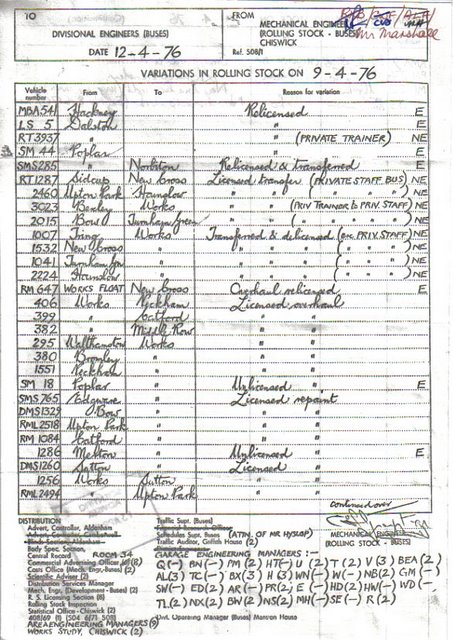 10
TO
DIVISIONAL ENGINEERS (BUSES)
DATE 12-4-76
FROM
MECHANICAL ENGINEER
(ROLLING STOCK - BUSES)
CHISWICK
Ref. 508/1
Mr Marshall
VARIATIONS IN ROLLING STOCK ON 9-4-76
Vehicle number From To Reason for variation
MBA541 Hackney Relicensed E
LS 5 Dalston " E
RT3937 " (PRIVATE TRAINER) NE
SM 44 Poplar " E
SMS285 Norbiton Relicensed & transferred E
RT1287 Sidcup New Cross Licensed transfer (PRIVATE STAFF BUS) NE
2460 Upton Park Hounslow " " ( " " " ) NE
3023 Bexley Works " " (PRIV TRAINER to PRIV. STAFF) NE
2015 Bow Turnham Green " " ( " " " ) NE
1007 Tring Works Transferred & delicensed (ex PRIV. STAFF) NE
1532 New Cross " " " ( " " " ) NE
1041 Turnham Grn " " " ( " " " ) NE
2224 Hounslow " " " ( " " " ) NE
RM 647 WORKS FLOAT New Cross Overhaul relicensed E
406 Works Peckham Licensed overhaul
399 " Catford " "
382 " Middle Row " "
295 Walthamstow Works " "
380 Bromley " " "
1551 Peckham " " "
SM 18 Poplar " Unlicensed " E
SMS765 Edgware " Licensed repaint
DMS1329 Bow " " "
RML2518 Upton Park " " "
RM 1084 Catford " " "
1286 Merton " Unlicensed " E
DMS1260 Sutton " Licensed "
1256 Works Sutton " "
RML2494 " Upton Park " "
continued over
DISTRIBUTION
Advert. Controller, Aldenham
Body Spec. Section,
Central Record ROOM 34
Commercial Advertising Officer,
Costs Office (Mech. Engr. Buses) (2)
Scientific Adviser (2)
Distribution Services Manager
Mech. Engr. (Development - Buses) (2)
R. S. Licensing Section (8)
Rolling Stock Inspection
Statistical Office - Chiswick (2)
408/69 (1) 504 6/71 508
AREA ENGINEERING MANAGERS (9)
WORKS STUDY, CHISWICK (2)
Traffic Supt. (Buses)
Schedules Supt. (Buses) (ATTN. OF MR HYSLOP)
Traffic Auditor, Griffith House (2)
MECHANICAL ENGINEER
(ROLLING STOCK - BUSES)
GARAGE ENGINEERING MANAGERS :-
Q(-) BN(-) PM(2) HT(-) U(2) T(2) V(3) BEA(2)
AL(3) TC(-) BX(3) H(3) WN(-) W(-) NB(2) GM(-)
SW(-) ED(2) AR(-) PR(2) E(-) HD(2) HW(-) WD(-)
TL(2) NX(2) BW(2) NS(2) MH(-) SE(-) R(2)
Divl. Operating Manager (Buses) Manson House (2)